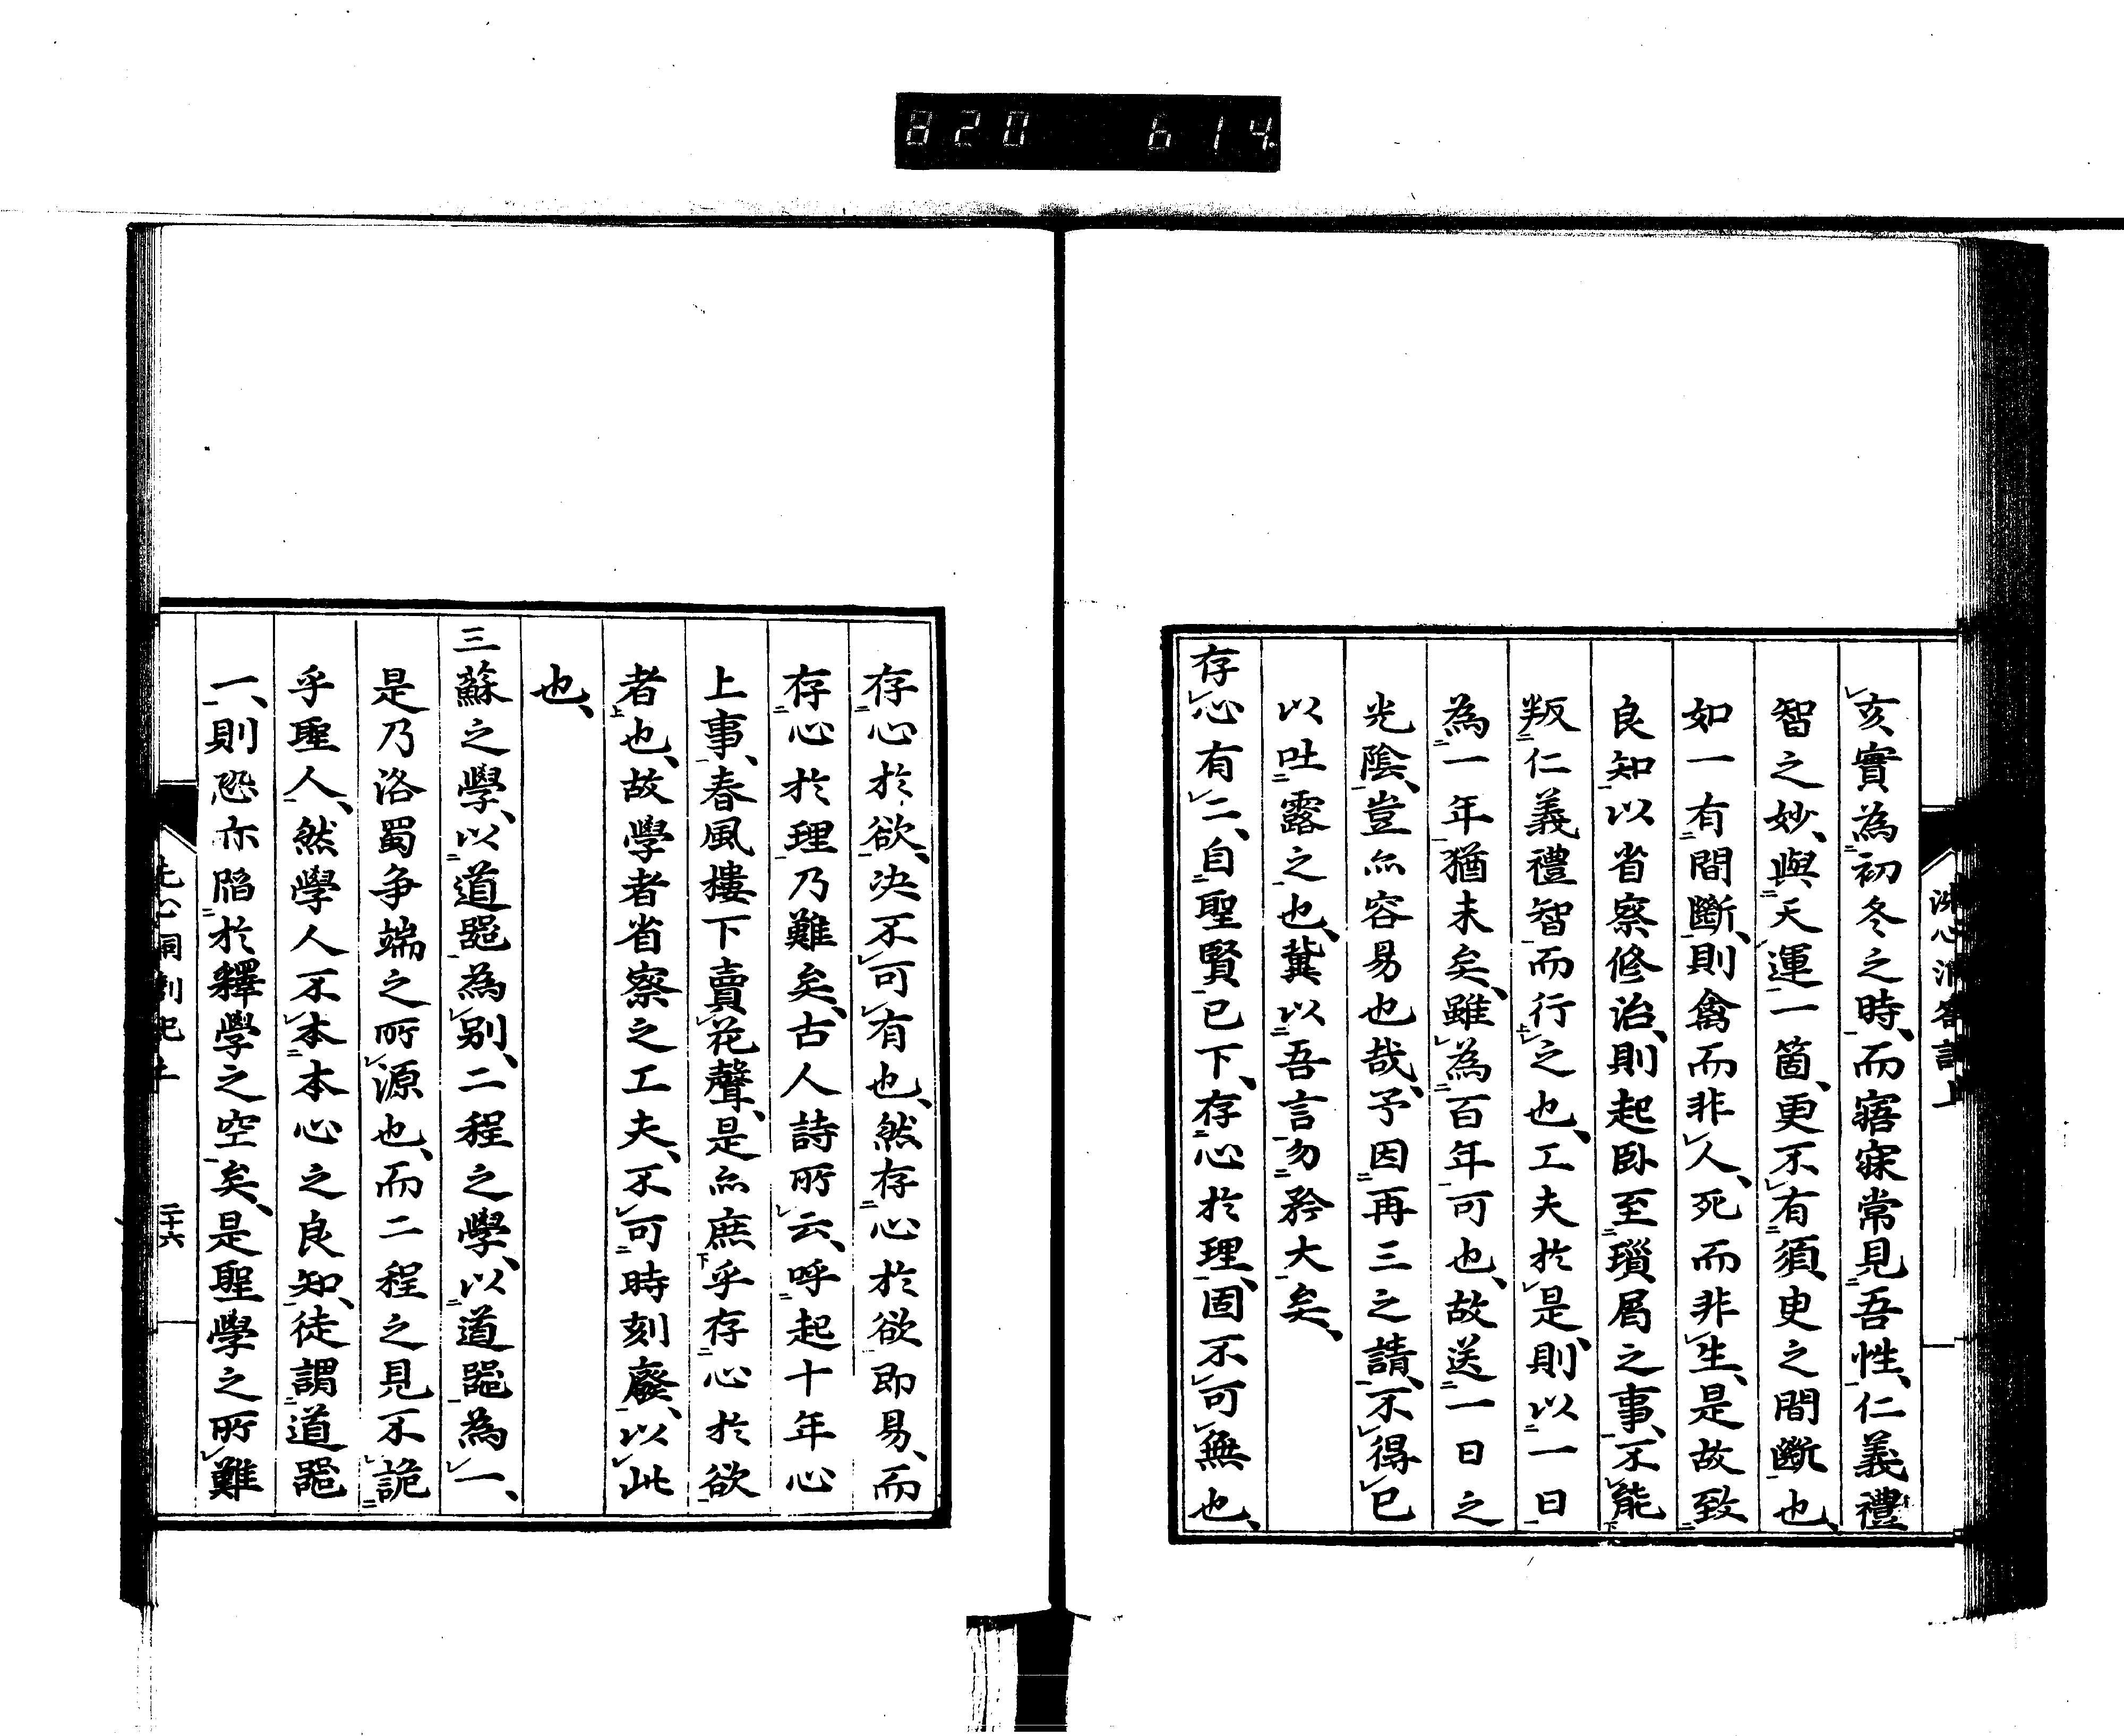 820 614
亥實為初冬之時、而寤寐常見吾性、仁義禮
智之妙、與天運一箇、更不有須臾之間斷也、
如一有間斷、則禽而非人、死而非生、是故致
良知以省察修治、則起臥至瑣屑之事、不能
叛仁義禮智而行之也、工夫於是、則以一日
為一年猶未矣、雖為百年可也、故送一日之
光陰、豈亦容易也哉、予因再三之請、不得已
以吐露之也、冀以吾言勿矜大矣、
存心有二、自聖賢已下、存心於理、固不可無也、
存心於欲、決不可有也、然存心於欲即易、而
存心於理乃難矣、古人詩所云、呼起十年心
上事、春風樓下賣花聲、是亦庶乎存心於欲
者也、故學者省察之工夫、不可時刻廢、以此
也、
三蘇之學、以道器為別、二程之學、以道器為一、
是乃洛蜀爭端之所源也、而二程之見不詭
乎聖人、然學人不本本心之良知、徒謂道器
一、則恐亦陷於釋學之空矣、是聖學之所難
二十六